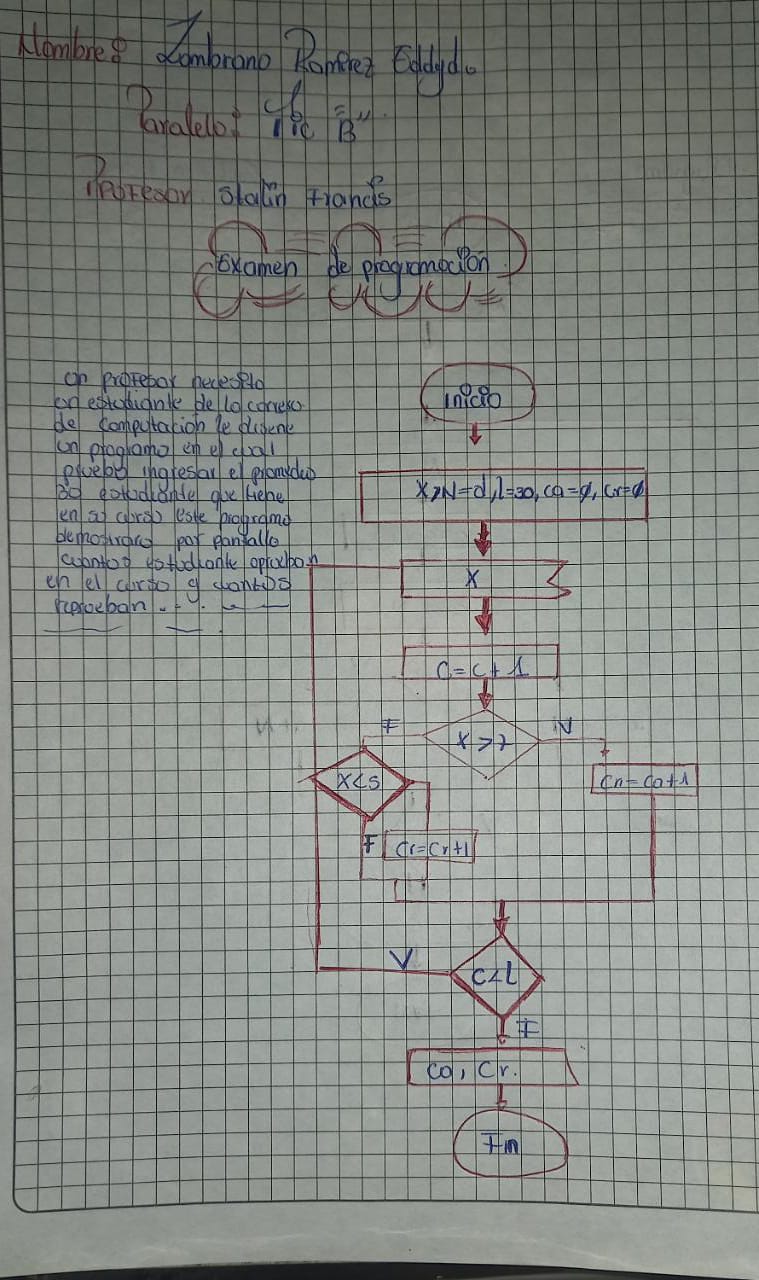 Nombre: Zambrano Ramírez Eddy d.
Paralelo: Tic "B"
Profesor Stalin Francis
Examen de programación.
un profesor necesita
un estudiante de la carrera
de computación le diseñe
un programa en el cual
pueba ingresar el promedio
30 estudiante que tiene
en su curso este programa
demostrara por pantalla
cuantos estudiante aprueban
en el curso y cuantos
reprueban
inicio
X, N=d, l=30, ca=φ, Cr=φ
X
C=c+1
F
X>7
N
X<5
Cn=Ca+1
F
Cr=Cr+1
V
C<l
F
Ca, Cr.
Fin